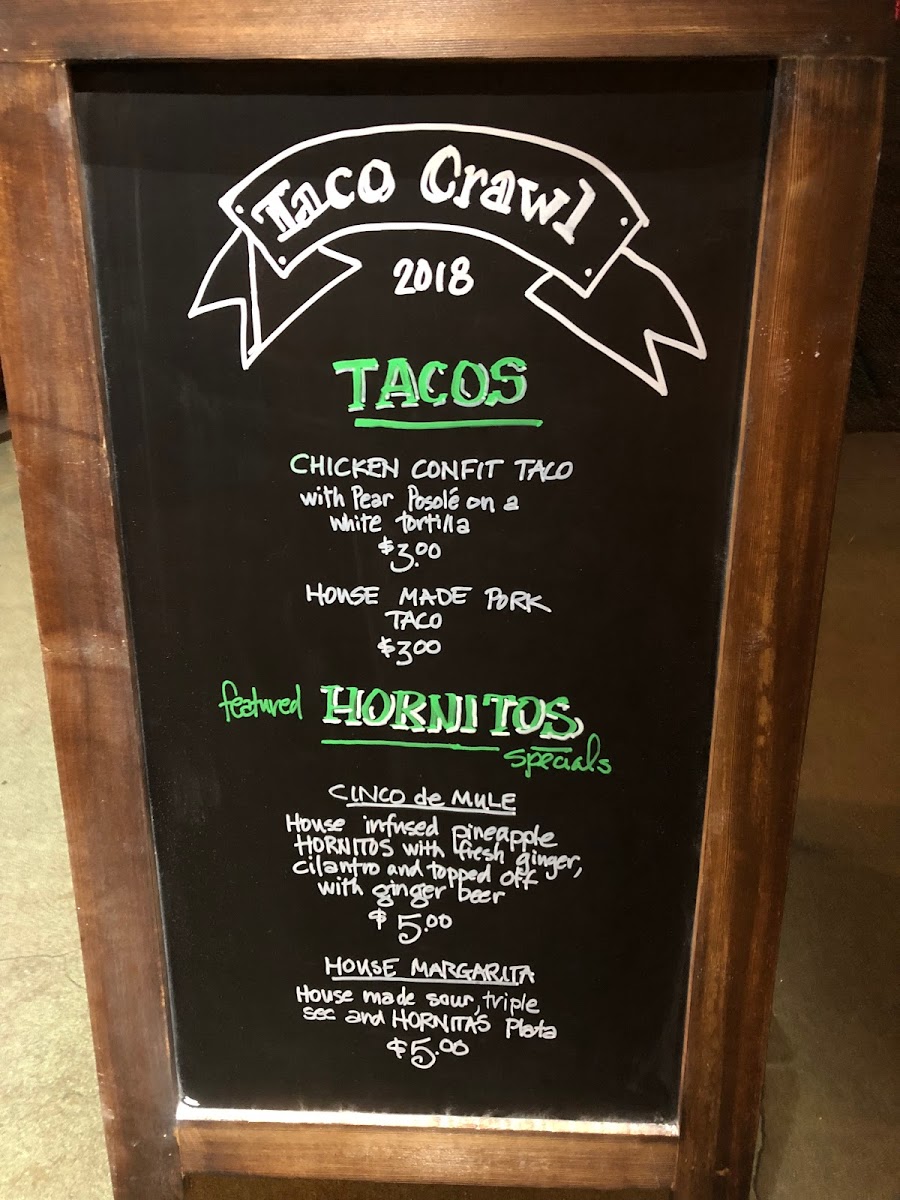 Taco Crawl
2018
TACOS
CHICKEN CONFIT TACO
with Pear Posolé on a
white tortilla
$3.00
HOUSE MADE PORK
TACO
$3.00
featured HORNITOS
specials
CINCO de MULE
House infused pineapple
HORNITOS with fresh ginger,
cilantro and topped off
with ginger beer
$5.00
HOUSE MARGARITA
House made sour, triple
sec and HORNITAS Plata
$5.00